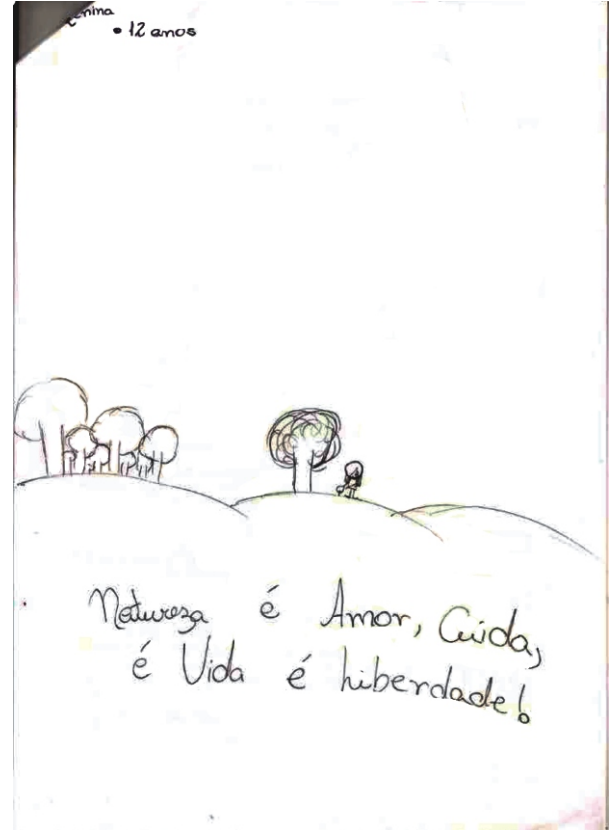 Menina
• 12 anos
Natureza é Amor, Cuida,
é Vida é Liberdade!